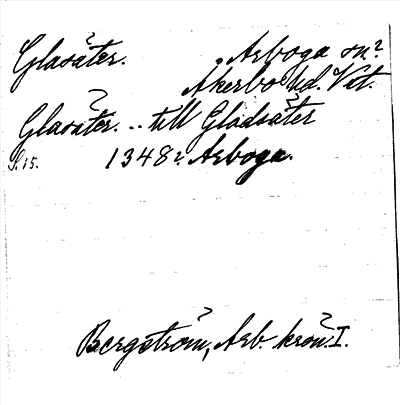 Glasäter. Arboga sn?
Åkerbo hd. Vst.
Glasäter. .. till Gladsäter
S. 15. 1348 r. Arboga.
Bergström, Arb. krön. I.